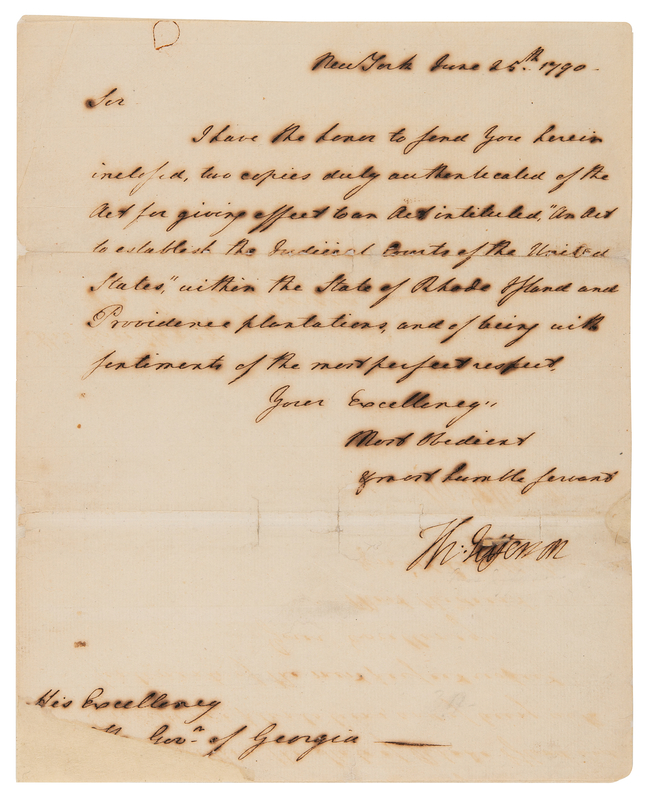 New York June 25th. 1790.
Sir
I have the honor to send you herein
inclosed, two copies duly authenticated of the
Act for giving effect to an Act intituled, "An Act
to establish the Judicial Courts of the United
States," within the State of Rhode Island and
Providence plantations, and of being with
sentiments of the most perfect respect,
Your Excellency's
Most Obedient
& most humble servant
Th: Jefferson
His Excellency
Govr. of Georgia